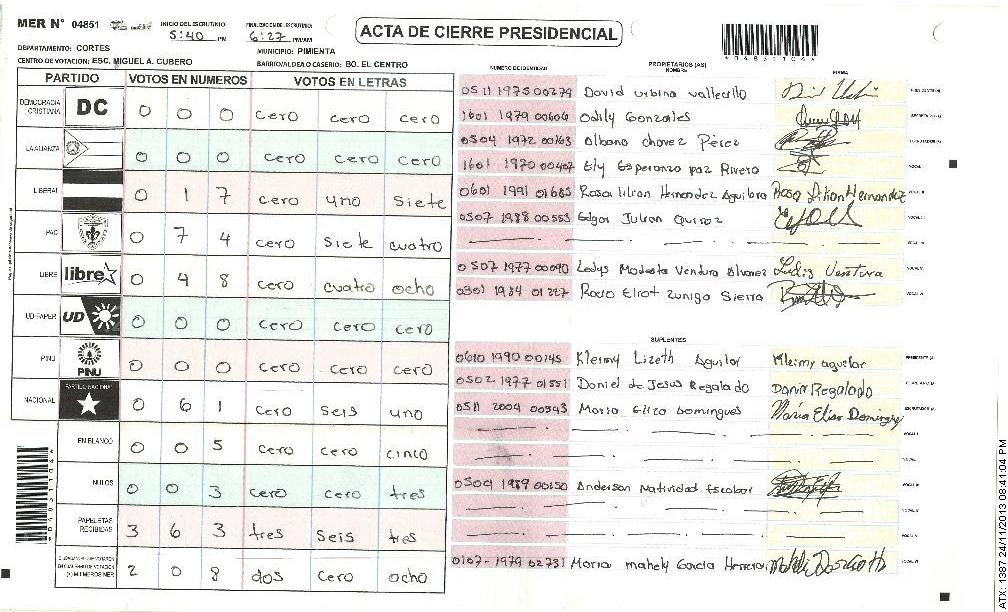 MER N° 04851 INICIO DEL ESCRUTINIO: 5:40 PM FINALIZACION DEL ESCRUTINIO: 6:27 PM/AM
ACTA DE CIERRE PRESIDENCIAL
*04851104*
DEPARTAMENTO: CORTES MUNICIPIO: PIMIENTA
CENTRO DE VOTACION: ESC. MIGUEL A. CUBERO BARRIO/ALDEA O CASERIO: BO. EL CENTRO
PARTIDO VOTOS EN NUMEROS VOTOS EN LETRAS
DEMOCRACIA CRISTIANA DC 0 0 0 cero cero cero
LA ALIANZA 0 0 0 cero cero cero
LIBERAL 0 1 7 cero uno siete
PAC 0 7 4 cero siete cuatro
LIBRE libre 0 4 8 cero cuatro ocho
UD FAPER UD 0 0 0 cero cero cero
PINU PINU 0 0 0 cero cero cero
NACIONAL PARTIDO NACIONAL 0 6 1 cero seis uno
EN BLANCO 0 0 5 cero cero cinco
NULOS 0 0 3 cero cero tres
PAPELETAS RECIBIDAS 3 6 3 tres seis tres
2 0 8 dos cero ocho
NUMERO DE IDENTIDAD PROPIETARIOS (AS) NOMBRE FIRMA
0511 1975 00279 David urbina vallecillo
1601 1979 00606 Odily Gonzales
0504 1972 00163 Albano chavez Pérez
1601 1970 00407 Ely Esperanza paz Rivera
0601 1991 01665 Rosa lilian Hernandez Aguilera Rosa Lilian Hernandez
0507 1988 00553 Edgar Julian Quiroz
0507 1977 00090 Ledys Modesta Ventura Alvarez Ledis Ventura
0301 1984 01227 Rocio Elizot Zuniga Sierra
SUPLENTES
0610 1990 00745 Kleimy Lizeth Aguilar Kleimy aguilar
0502 1977 01551 Daniel de Jesus Regalado Daniel Regalado
0511 2004 00343 Maria Eliza Domingues Maria Elisa Domingues
0504 1989 00150 Anderson Natividad Escobar
0107-1979 02731 Maria mahely Garcia Herrera
*04851104*
ATX: 1387 24/11/2013 08:41:04 PM